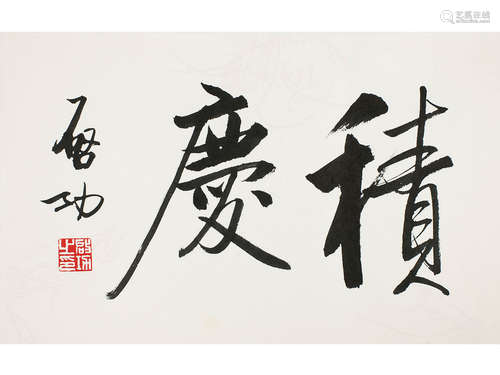 積慶
啓功
啟功之印